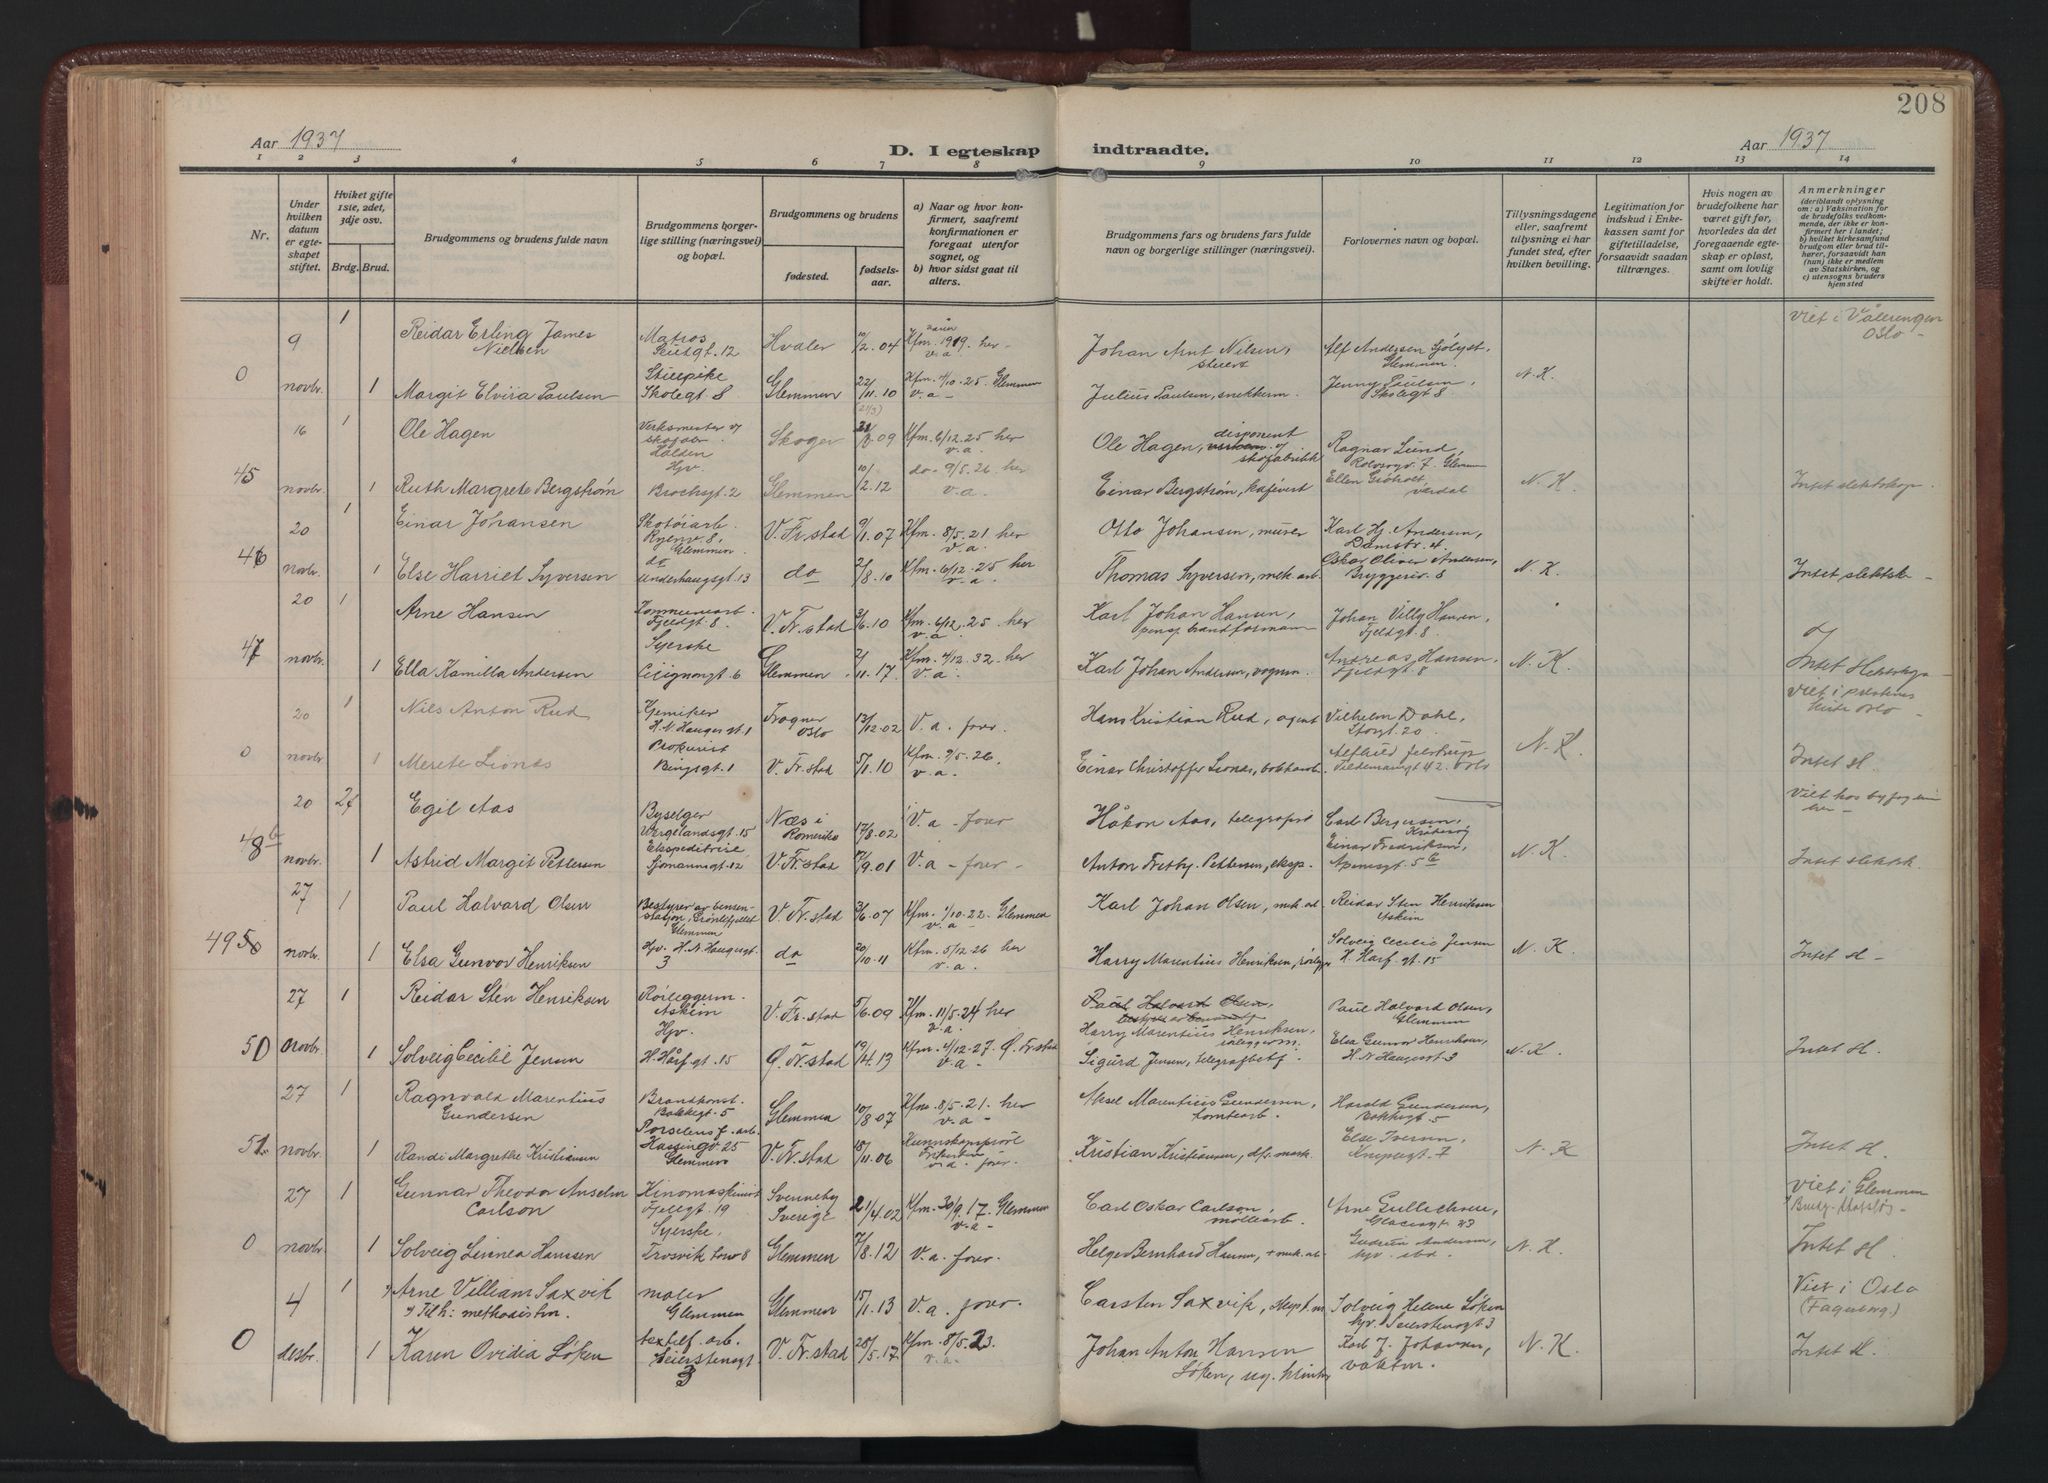 208
Aar 1937
D. I egteskap
indtraadte.
Aar 1937
1 2 3 4 5 6 7 8 9 10 11 12 13 14
Nr.
Under hvilken datum er egteskapet stiftet.
Hviket gifte 1ste, 2det, 3dje osv.
Brdg. Brud.
Brudgommens og brudens fulde navn
Brudgommens borgerlige stilling (næringsvei) og bopæl.
Brudgommens og brudens
fødested.
fødselsaar.
a) Naar og hvor konfirmert, saafremt konfirmationen er foregaat utenfor sognet, og
b) hvor sidst gaat til alters.
Brudgommens fars og brudens fars fulde navn og borgerlige stillinger (næringsvei).
Forlovernes navn og bopæl.
Tillysningsdagene eller, saafremt tillysning ei har fundet sted, efter hvilken bevilling.
Legitimation for indskud i Enkekassen samt for giftetilladelse, forsaavidt saadan tiltrænges.
Hvis nogen av brudefolkene har været gift før, hvorledes da det foregaaende egteskap er opløst, samt om lovlig skifte er holdt.
Anmerkninger (deriblandt oplysning om: a) Vaksination for de brudefolks vedkommende, der ikke er konfirmert her i landet; b) hvilket kirkesamfund brudgom eller brud tilhører, forsaavidt han (hun) ikke er medlem av Statskirken, og c) utensogns bruders hjemsted
9 1 Reidar Erling James Nielsen Matros 12 Hvaler 10/2.04 Kfm. 1919. her v.a. Johan Arnt Nilsen, stuert Alf Andersen Sjölyst, Glemmen viet i Vålerengen Oslo
0 novbr. 1 Margit Elvira Paulsen Skolegt 8 Glemmen 22/11.10 Kfm. 4/10.25. Glemmen v.a. Julius Paulsen, snekkerm. Jenny Paulsen, Skolegt 8 N.K.
16 1 Ole Hagen Verksmester v/ skofabr. Halden Skoger 09 Kfm. 6/12.25 her v.a. Ole Hagen, disponent v/ skofabrikk Ragnar Lund, 7. Glemmen
45 novbr. 1 Ruth Margrete Bergström Hjv. Brochsgt. 2 Glemmen 10/2.12 do 9/5.26 her v.a. Einar Bergström, kafévert Ellen N.K. Intet slektskap.
20 1 Einar Johansen Skotöiarb. Ryenv. 8, Glemmen V. Fr.stad 9/1.07 Kfm. 8/5.21 her v.a. Otto Johansen, murer Karl Hj. Andersen, Damstr. 4
46 novbr. 1 Else Harriet Syversen do Underhaugsgt. 13 do 2/8.10 Kfm. 6/12.25 her v.a. Thomas Syversen, mek. arb. Oskar Oliver Andersen, Bryggeriv. 8 N.K. Intet slektsk
20 1 Arne Hansen Kommunearb. Fjeldgt. 8 V. Fr.stad 3/6.10 Kfm. 6/12.25 her v.a. Karl Johan Hansen, Johan Villy Hansen, Fjeldgt. 8
47 novbr. 1 Ella Kamilla Andersen Syerske Cicignongt. 6 Glemmen 2/11.17 Kfm. 4/12.32. her v.a. Karl Johan Andersen, vognm. Andreas Hansen, Fjeldgt 8 N.K. Intet slektskap
20 1 Nils Anton Rud Kjemiker H. N. Hauges gt. 1 Frogner Oslo 13/12.02 V.a. forov. Hans Kristian Rud, agent Vilhelm Dahl, Storgt. 20 viet i kirke Oslo
0 novbr. 1 Merete Lionæs Prokurist Bingsgt. 1 V. Fr.stad 5/1.10 Kfm. 9/5.26. v.a. Einar Christoffer Lionæs, Tidemannsgt 42. Oslo N.K. Intet sl.
20 2t Egil Aas Byselger Wergelandsgt. 15 Næs i Romerike 17/8.02 V.a. forov Håkon Aas, telegrafist Carl Bergersen, Viet hos byfogden her
48b novbr. 1 Astrid Margit Pettersen Ekspeditrise Sjömannsgt. 12 V. Fr.stad 9.01 V.a. forov Anton Fretby Pettersen, eksp. Einar Fredriksen, Apenesgt. 5b N.K. Intet slektsk
27 1 Paul Halvard Olsen Bestyrer av bensenstasjon, Glemmen V. Fr.stad 3/6.07 Kfm. 1/10.22. Glemmen v.a. Karl Johan Olsen, mek. arb Reidar Sten Henriksen Askim
49 novbr. 1 Elsa Gunvor Henriksen Hjv. H. N. Haugesgt. 3 do 20/10.11 Kfm. 5/12.26 her v.a. Harry Marentius Henriksen, Solveig Cecilie Jensen H. Hårf. gt. 15 N.K. Intet sl
27 1 Reidar Sten Henriksen Rörleggerm. Askim V. Fr.stad 5/6.09 Kfm. 11/5.24 her v.a. Paul Halvard Olsen, Harry Marentius Henriksen, rörleggerm. Paul Halvard Olsen, Glemmen
50 novbr. 1 Solveig Cecilie Jensen Hjv. H. Hårf. gt. 15 Ö. Fr.stad 19/4.13 Kfm. 4/12.27. Ö. Fr.stad v.a. Sigurd Jensen, telegrafbetj. Elsa Gunvor Henriksen, H. N. Haugesgt 3 N.K. Intet sl.
27 1 Ragnvald Marentius Gundersen Brandkonst. Bakkegt. 5 Glemmen 10/8.07 Kfm. 8/5.21. her v.a. Aksel Marentius Gundersen, tomtearb. Harald Gundersen, Bakkegt. 5
51 novbr. 1 Randi Margrethe Kristiansen Porselensf. arb. 25 Glemmen V. Fr.stad 18/11.06 v.a. forov. Kristian Kristiansen, Else Iversen, 7 N.K. Intet sl.
27 1 Gunnar Theodor Anselm Carlson Kinomaskinist Fjellgt. 19 Svenneby Sverige 21/4.02 Kfm. 30/9.17. Glemmen v.a. Carl Oskar Carlson, möllearb. Arne Gullichsen, Glacisgt 23 Viet i Glemmen
0 novbr. 1 Solveig Linnea Hanssen Syerske, Trosvik 8 Glemmen 7/8.12 V.a. forov. Helge Bernhard Hansen, mek. arb. Gudrun Andersen, hjv. ibd. N.K. Intet sl.
4 1 Arne Villiam Saxvik Tilh: methodistkn. maler Glemmen Glemmen 15/1.13 V.a. forov. Carsten Saxvik, Solveig Helene Löken hjv. Seierstensgt 3 Viet i Oslo (Fagerborg)
0 desbr. 1 Karen Ovidia Löken textilf. arb. Seierstensgt 3 V. Fr.stad 28/5.17 Kfm. 8/5.23. v.a. Johan Anton Hansen Löken, Karl J. Johansen, vaktm. N.K. Intet sl.